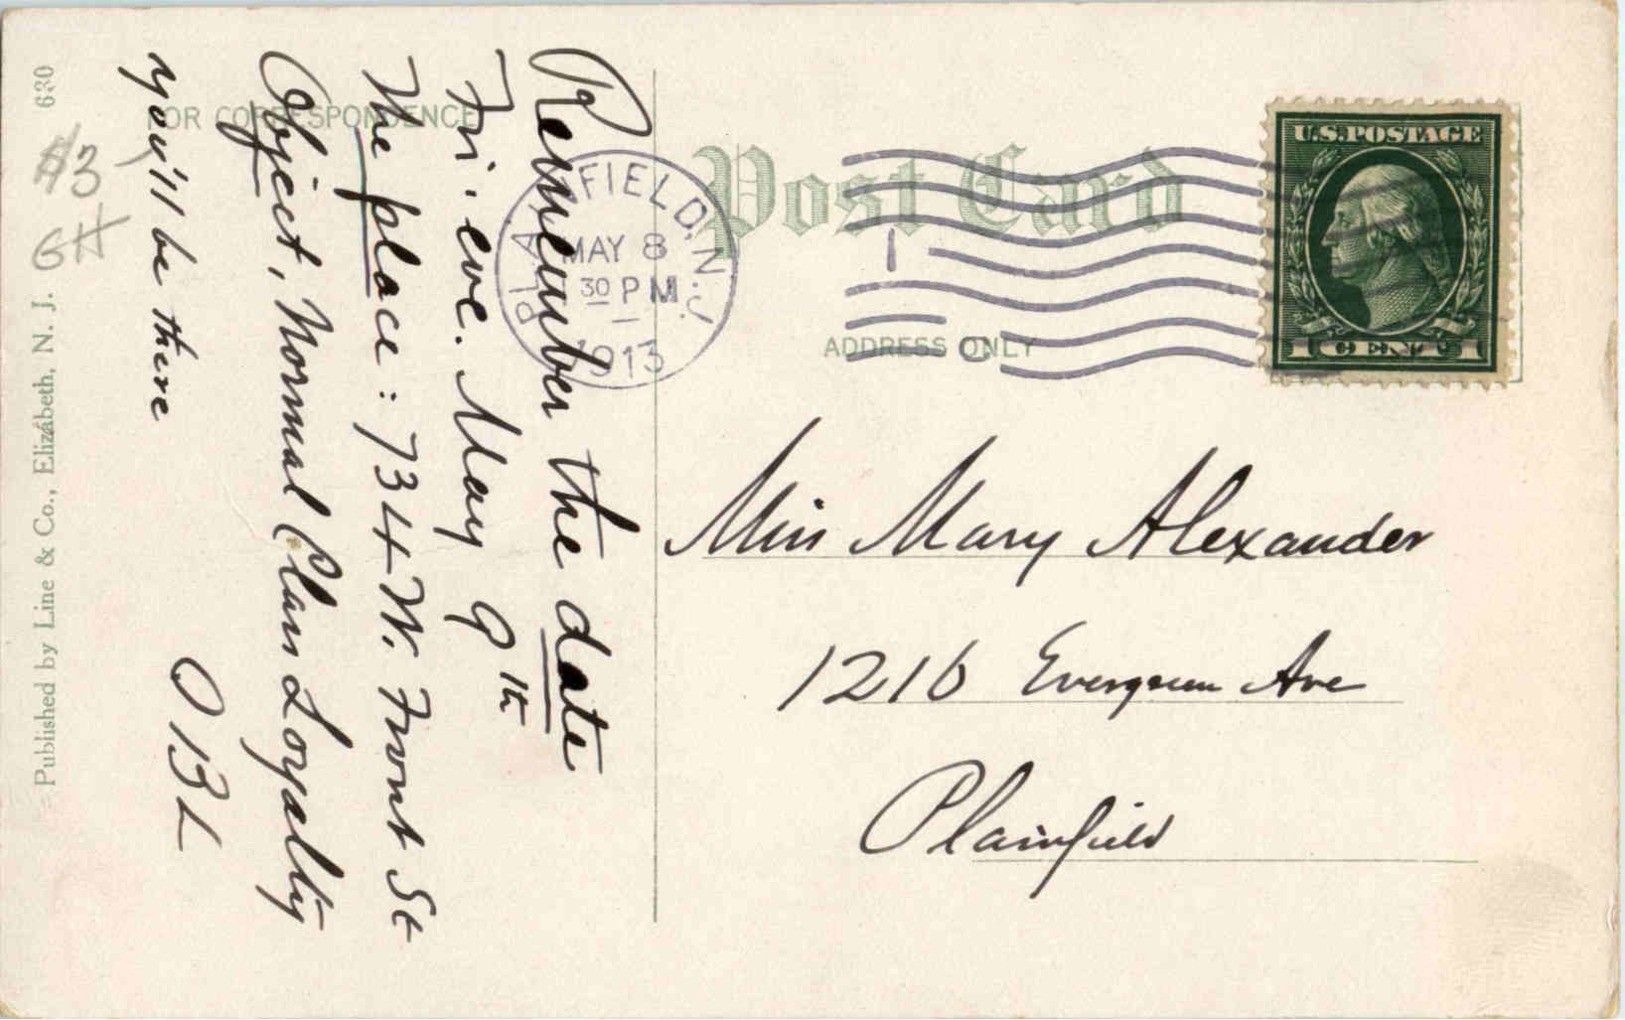 Remember the date
Fri. eve. May 9th
The place: 734 W. Front St
Object, Normal Class Loyalty
you'll be there
O B L
FOR CORRESPONDENCE
Published by Line & Co., Elizabeth, N. J. 630
$3
GH
Post Card
ADDRESS ONLY
PLAINFIELD, N.J.
MAY 8
30 PM
1913
1
U.S. POSTAGE
1 CENT 1
Miss Mary Alexander
1216 Evergreen Ave
Plainfield